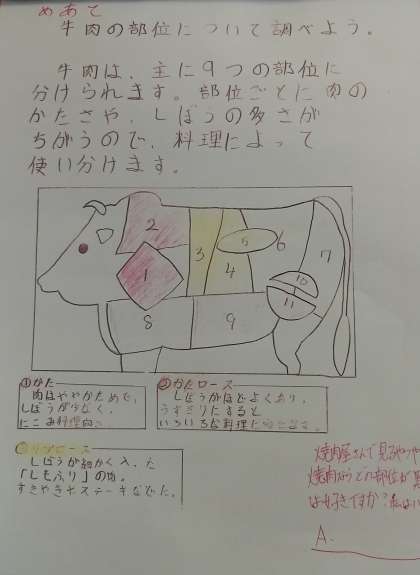 めあて
牛肉の部位について調べよう。
牛肉は、主に9つの部位に
分けられます。部位ごとに肉の
かたさや、しぼうの多さが
ちがうので、料理によって
使い分けます。
1
2
3
4
5
6
7
8
9
10
11
①かた
肉はややかためで、
しぼうが少なく、
にこみ料理向
②かたロース
しぼうがほどよくあり、
うすぎりにすると
いろいろな料理に
リブロース
しぼうが細かく入った
「しもふり」の肉。
すきやきやステーキなどに。
焼肉屋さんで見る
焼肉
は好きですか?私は
A.